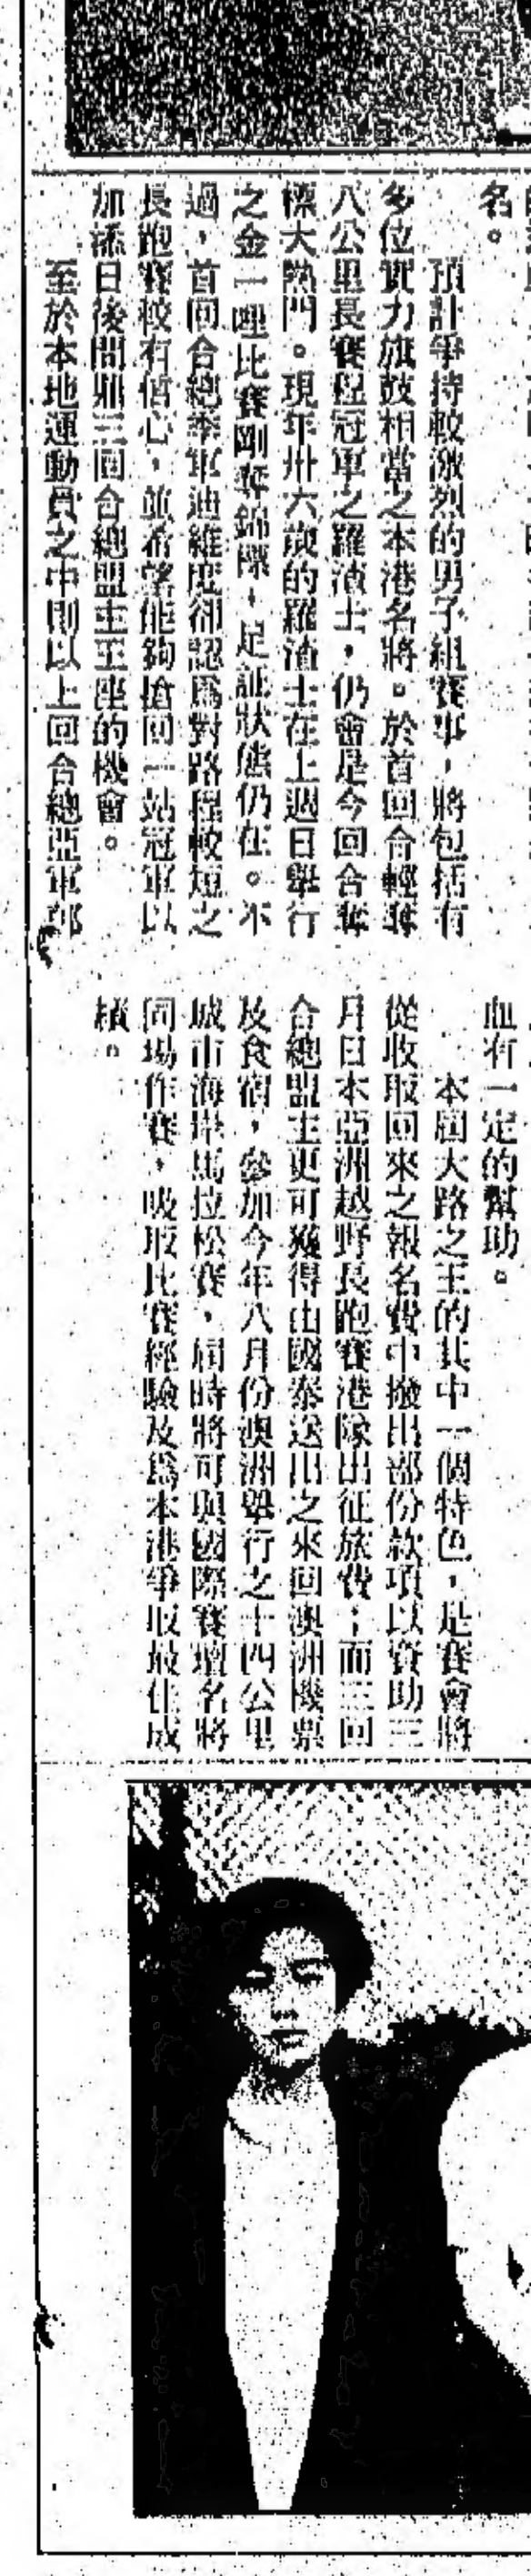 名。
預計爭持較激烈的男子組賽事，將包括有
多位實力旗鼓相當之本港名將。於首回合輕奪
八公里長賽程冠軍之羅渣士，仍會是今回合奪
標大熱門。現年卅六歲的羅渣士在上週日舉行
之金一哩比賽剛奪錦標，足証狀態仍在。不
過，首回合總季軍迪維度卻認爲對路程較短之
長跑賽較有信心，並希望能夠搶回一站冠軍以
加添日後問鼎三回合總盟主王座的機會。
至於本地運動員之中則以上回合總亞軍鄧
血有一定的幫助。
本屆大路之王的其中一個特色，是賽會將
從收取回來之報名費中撥出部份款項以資助三
月日本亞洲越野長跑賽港隊出征旅費；而三回
合總盟主更可獲得由國泰送出之來回澳洲機票
及食宿，參加今年八月份澳洲舉行之十四公里
城市海岸馬拉松賽，屆時將可與國際賽壇名將
同場作賽，吸取比賽經驗及爲本港爭取最佳成
績。